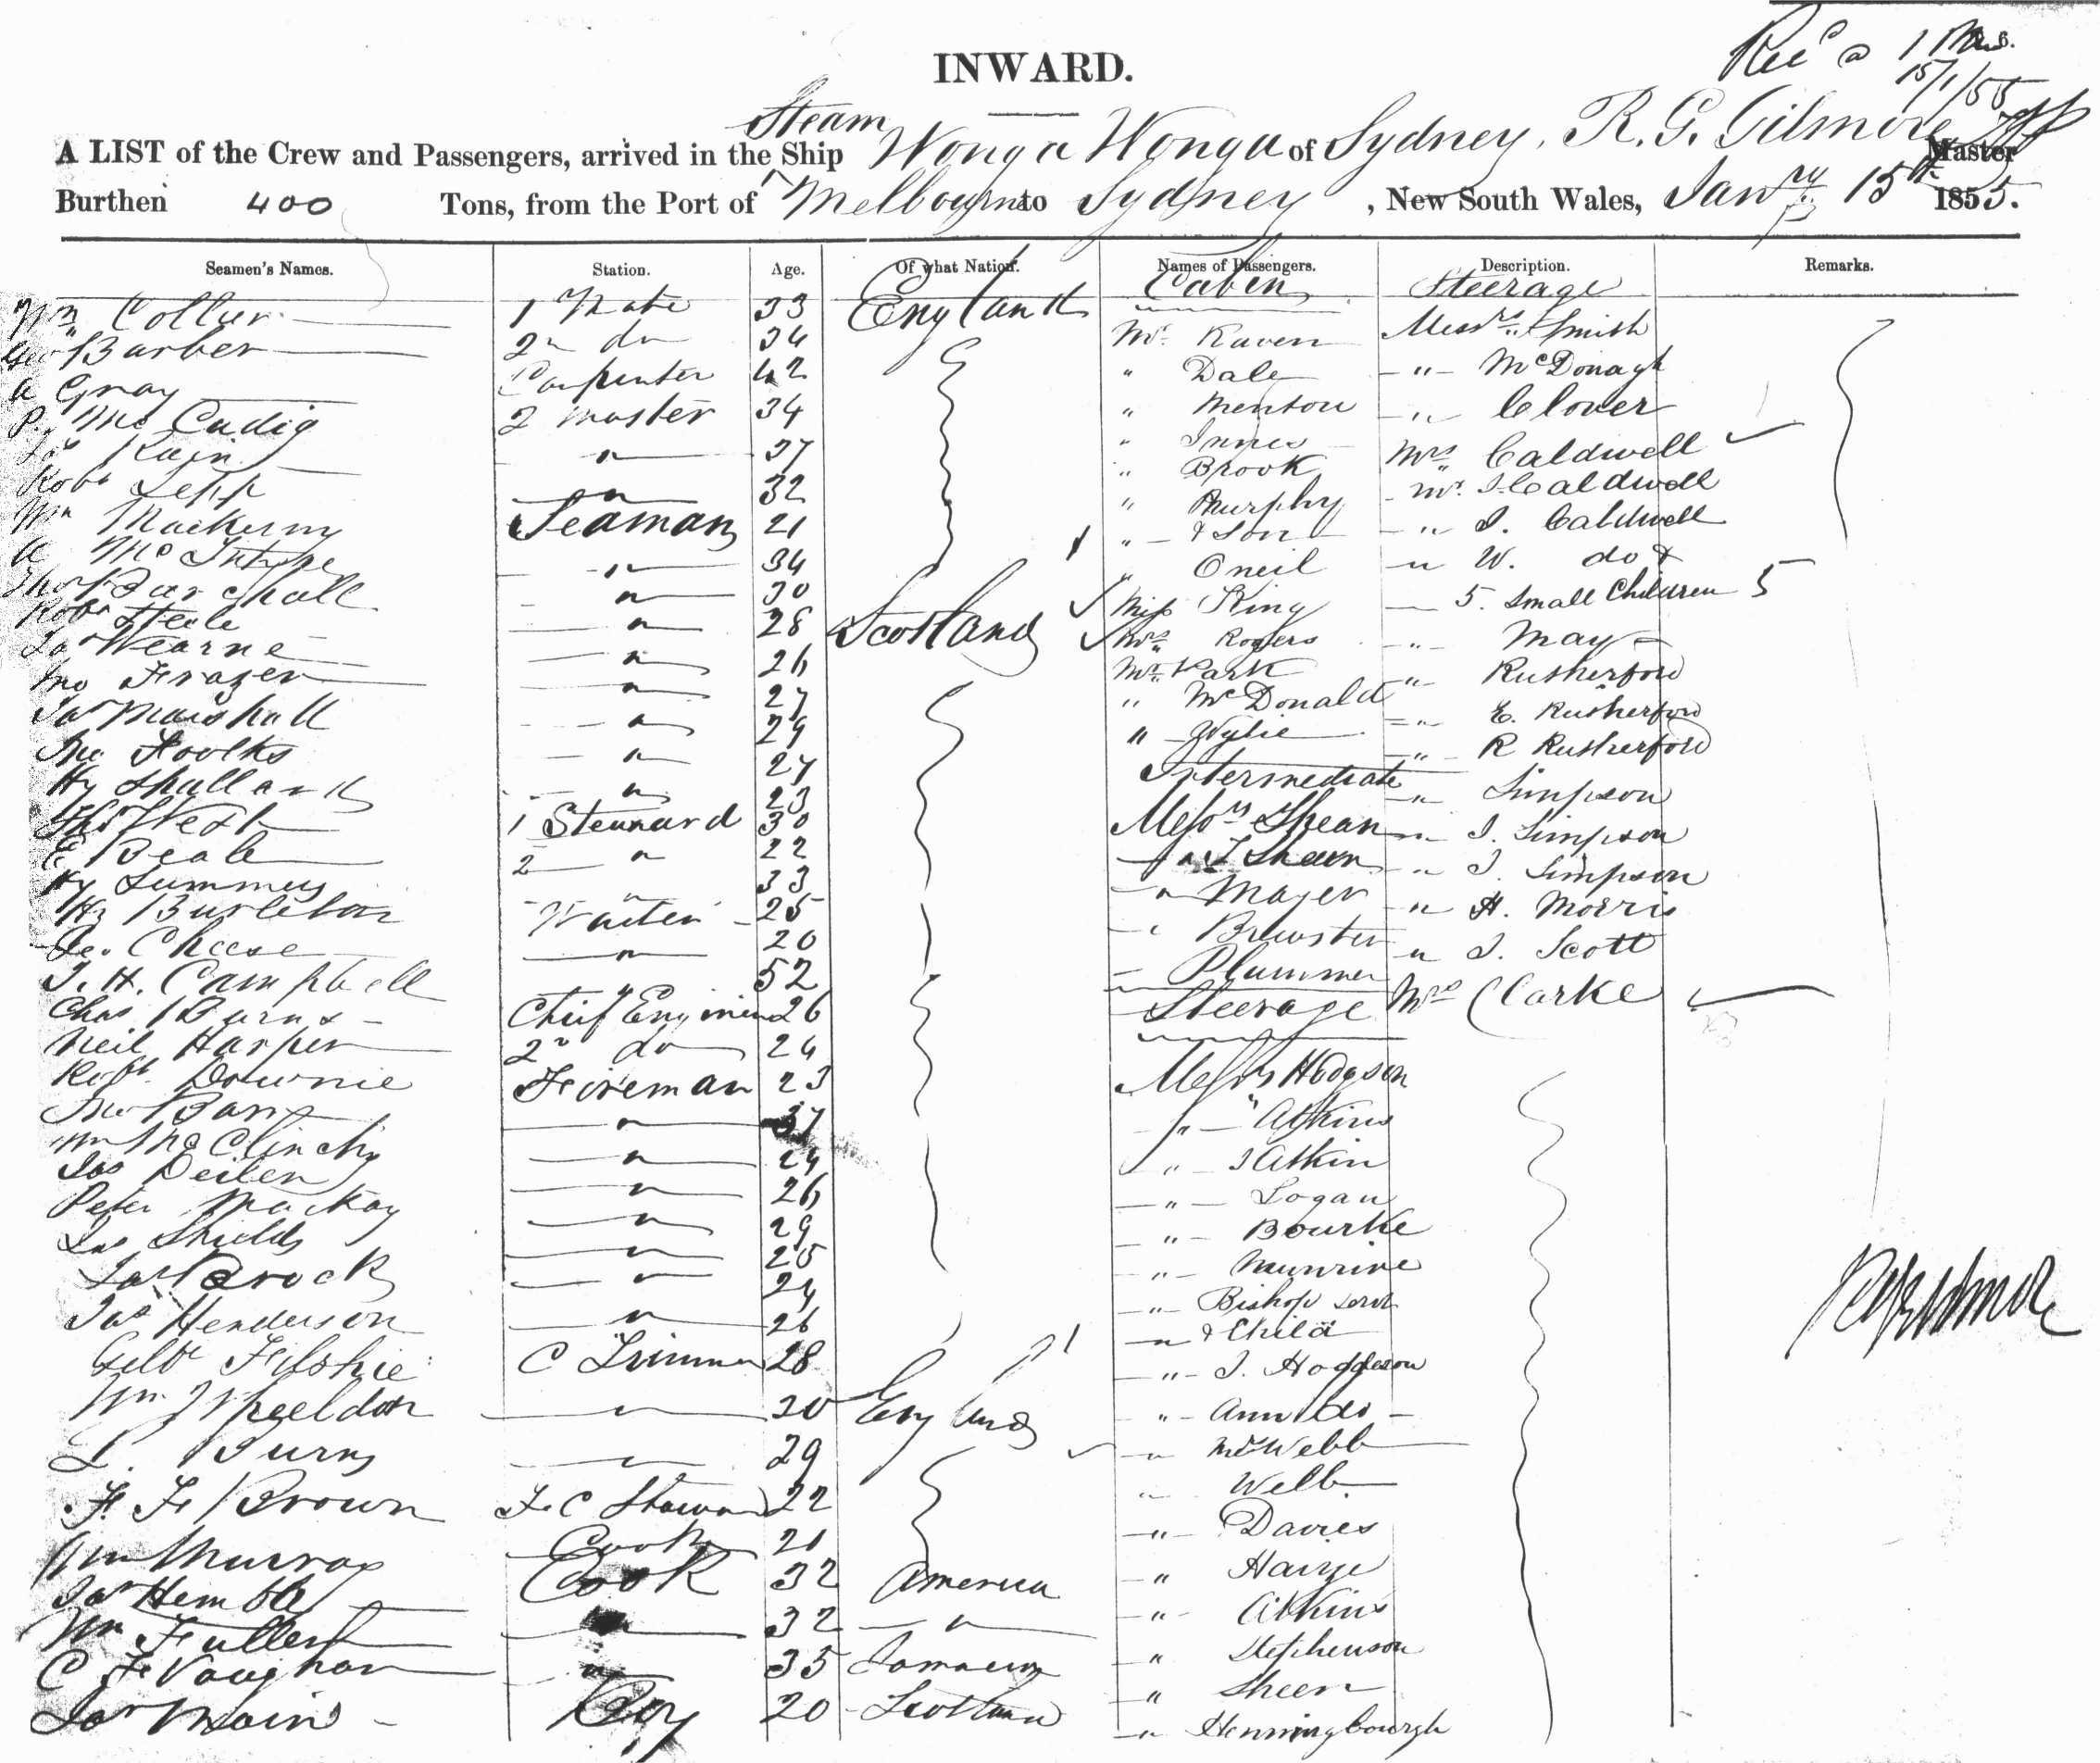 INWARD.
Steam
A LIST of the Crew and Passengers, arrived in the Ship Wonga Wonga of Sydney, R. G. Gilmore Master
Burthen 400 Tons, from the Port of Melbourne to Sydney, New South Wales, Jany 15th 1855.
Seamen's Names. Station. Age. Of what Nation. Names of Passengers. Description. Remarks.
Cabin Steerage
Wm Collier 1 Mate 33 England
Mr. Raven Messrs Smith
Geo Barber 2 do 34
" Dale " McDonagh
A Gray Carpenter 42
" Menton " Clover
P. Mc Cudig 2 Master 34
" Innes Mrs Caldwell
Jas Kain " 37
" Brook Mr. J. Caldwell
Robt Lepp " 32
" Murphy " J. Caldwell
Wm Mackerny Seaman 21
" & Son " W. do &
A McIntyre " 34
" Oneil 5 Small Children 5
Thos Barshall " 30
Miss King " May
Robt Steele " 28 Scotland
Mrs Rogers " Rutherford
Jas Wearne " 26
Mr. Park " E. Rutherford
Jno Frazer " 27
" McDonald " R Rutherford
Jas Marshall " 29
" Wylie " Simpson
Jno Foolks " 27
Intermediate " J. Simpson
Hy Shallard " 23
Messrs Shean " J. Simpson
Thos West 1 Steward 30
" J Shean " H. Morris
E Beale 2 " 22
" Mayer " J. Scott
Hy Summers " 33
" Brewster Mrs Clarke
Hy Burleton Waiter 25
" Plummer
Geo. Cheese " 20
Steerage
J. H. Campbell " 52
Messrs Hodgson
Chas Burns Chief Engineer 26
" Atkins
Neil Harper 2 do 24
" J Atkin
Robt. Downie Fireman 23
" Logan
Jno Barr " 37
" Bourke
Wm McClinchy " 24
" Munrine
Jas Deilen " 26
" Bishop servt
Peter Mackay " 29
" & Child
Jas Shields " 25
" J. Hodgson
Jas Brock " 24
" Ann do
Jas Henderson " 26
" Mrs Webb
Gilbt Filshie C Trimmer 28
" Webb
Wm J Wheeldon " 20 England
" Davies
L. Burns " 29
" Haize
F. F. Brown F C Steward 22
" Atkins
Wm Murray Cook 21
" Stephenson
Jas Hemble Cook 32 America
" Sheen
Wm Fuller 32 "
" Henningbourgh
C F Vaughan " 35 Jamaica
Jas Main Boy 20 Scotland